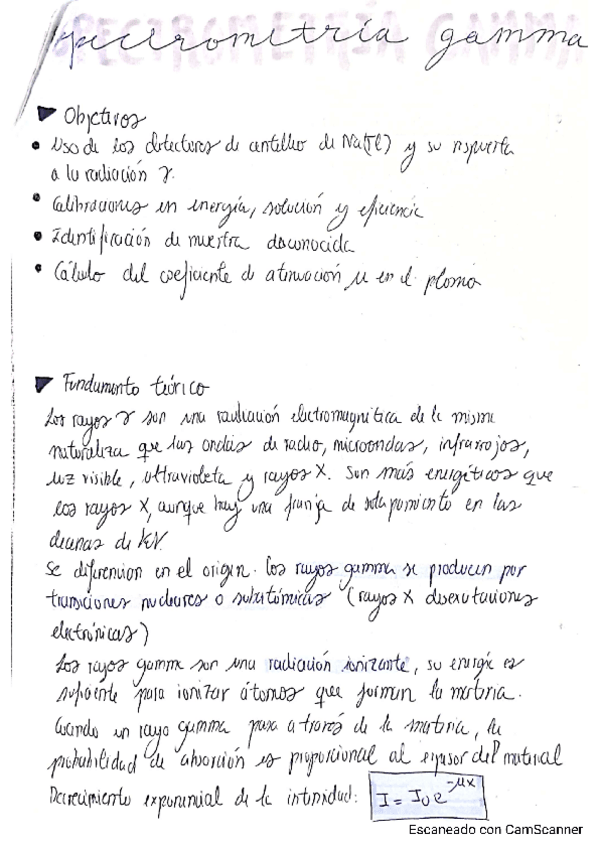 Espectrometría gamma
Objetivos
Uso de los detectores de centelleo de Na(Tl) y su respuesta
a la radiación γ.
Calibraciones en energía, solución y eficiencia
Identificación de muestra desconocida
Cálculo del coeficiente de atenuación μ en el plomo
Fundamento teórico
Los rayos γ son una radiación electromagnética de la misma
naturaleza que las ondas de radio, microondas, infrarrojos,
luz visible, ultravioleta y rayos X. Son más energéticos que
los rayos X, aunque hay una franja de solapamiento en las
decenas de kV.
Se diferencian en el origen. Los rayos gamma se producen por
transiciones nucleares o subatómicas (rayos X desexcitaciones
electrónicas)
Los rayos gamma son una radiación ionizante, su energía es
suficiente para ionizar átomos que forman la materia.
Cuando un rayo gamma pasa a través de la materia, la
probabilidad de absorción es proporcional al espesor del material
Decrecimiento exponencial de la intensidad: I = I₀ e^-μx
Escaneado con CamScanner